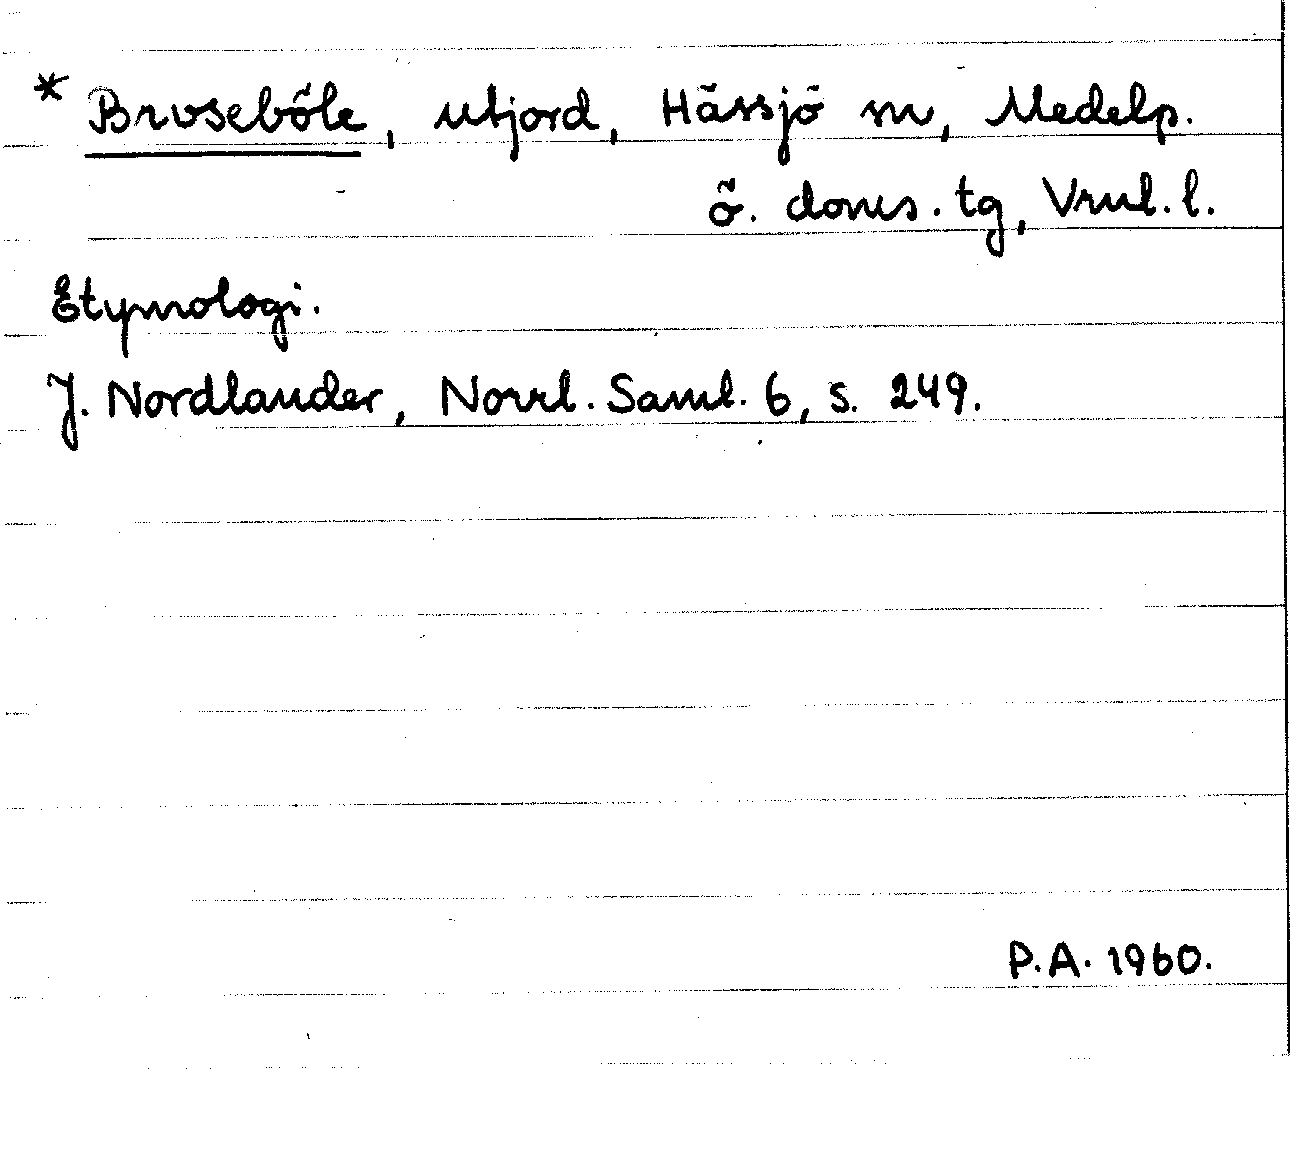 * Bruseböle, utjord, Hässjö sn, Medelp.
ö. doms. tg, Vrnl. l.
Etymologi.
J. Nordlander, Norrl. Saml. 6, s. 249.
P.A. 1960.